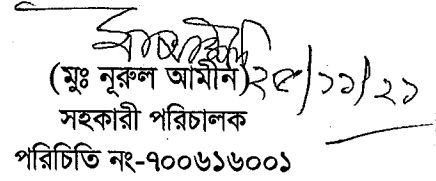 (মুঃ নূরুল আমীন) ২৫/১১/২১
সহকারী পরিচালক
পরিচিতি নং-৭০০৬১৬০০১